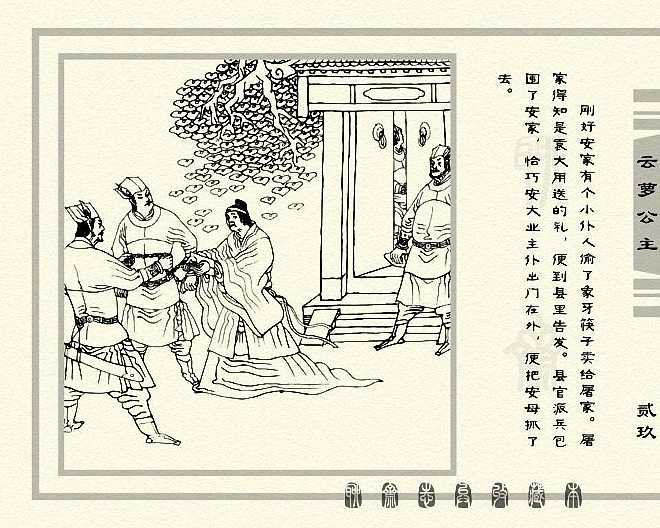 云萝公主
贰玖
刚好安家有个小仆人偷了象牙筷子卖给屠家。屠
家得知是袁大用送的礼，便到县里告发。县官派兵包
围了安家，恰巧安大业主仆出门在外，便把安母抓了
去。
聊斋志异收藏本